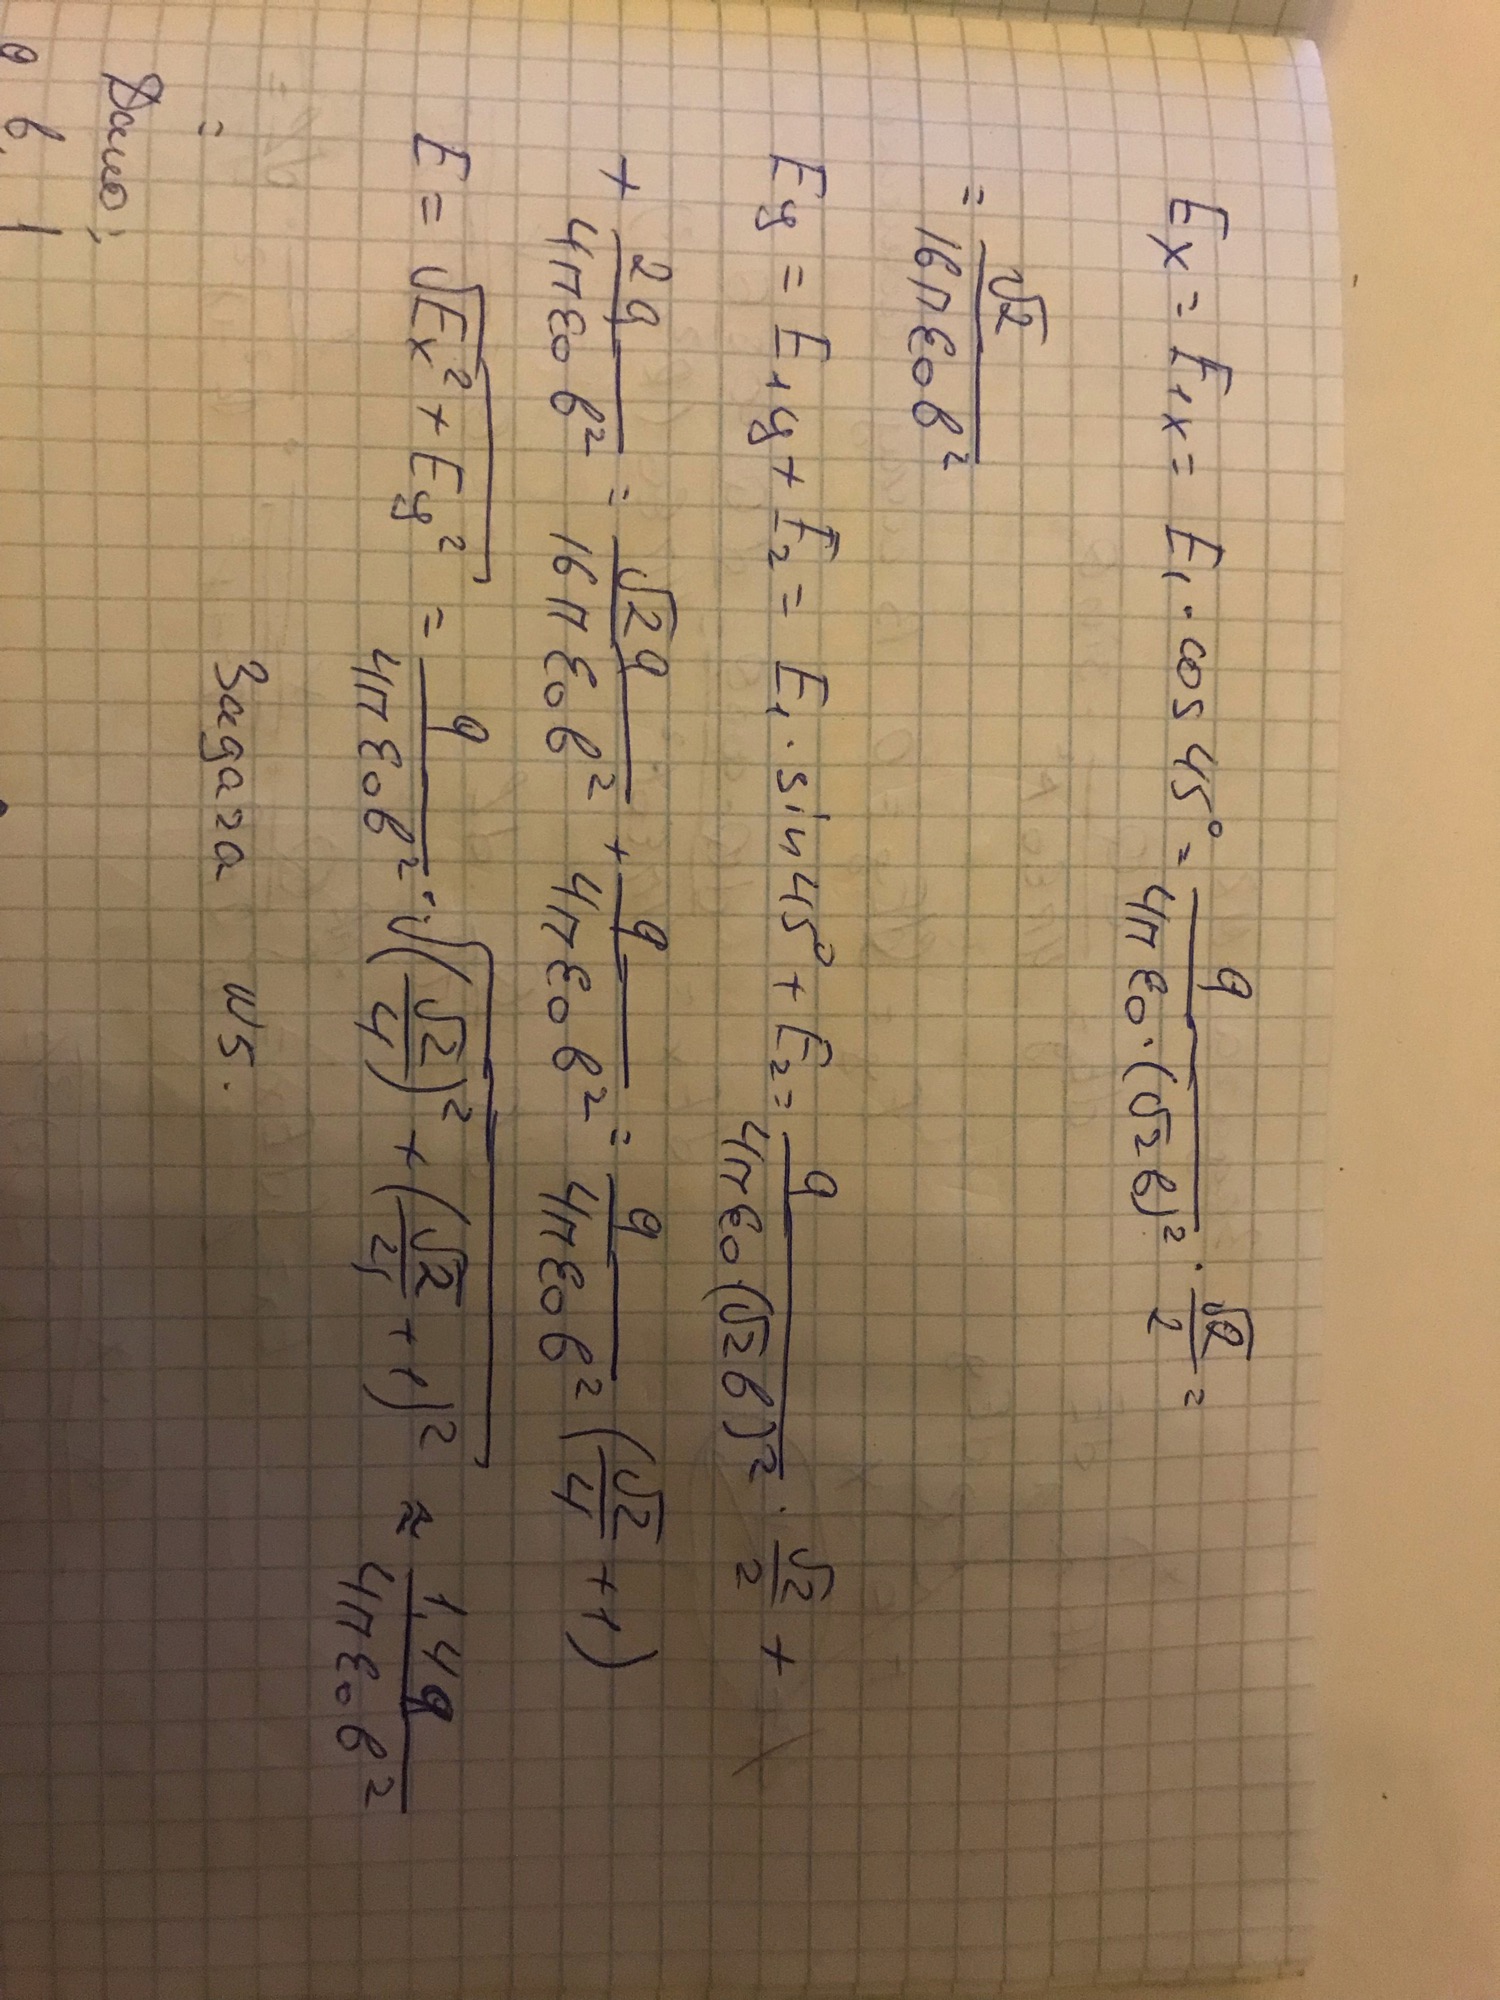 Eх = E₁х = E₁ · cos 45° = q / (4π ε₀ · (√2 в)²) · √2/2 =
= √2 / (16π ε₀ в²)
Eу = E₁у + E₂ = E₁ · sin 45° + E₂ = q / (4π ε₀ · (√2 в)²) · √2/2 +
+ 2q / (4π ε₀ в²) = √2 q / (16π ε₀ в²) + q / (4π ε₀ в²) = q / (4π ε₀ в²) (√2/4 + 1)
E = √(Eх² + Eу²) = q / (4π ε₀ в²) · √((√2/4)² + (√2/4 + 1)²) ≈ 1,4q / (4π ε₀ в²)
Задача N5.
=
Дано: